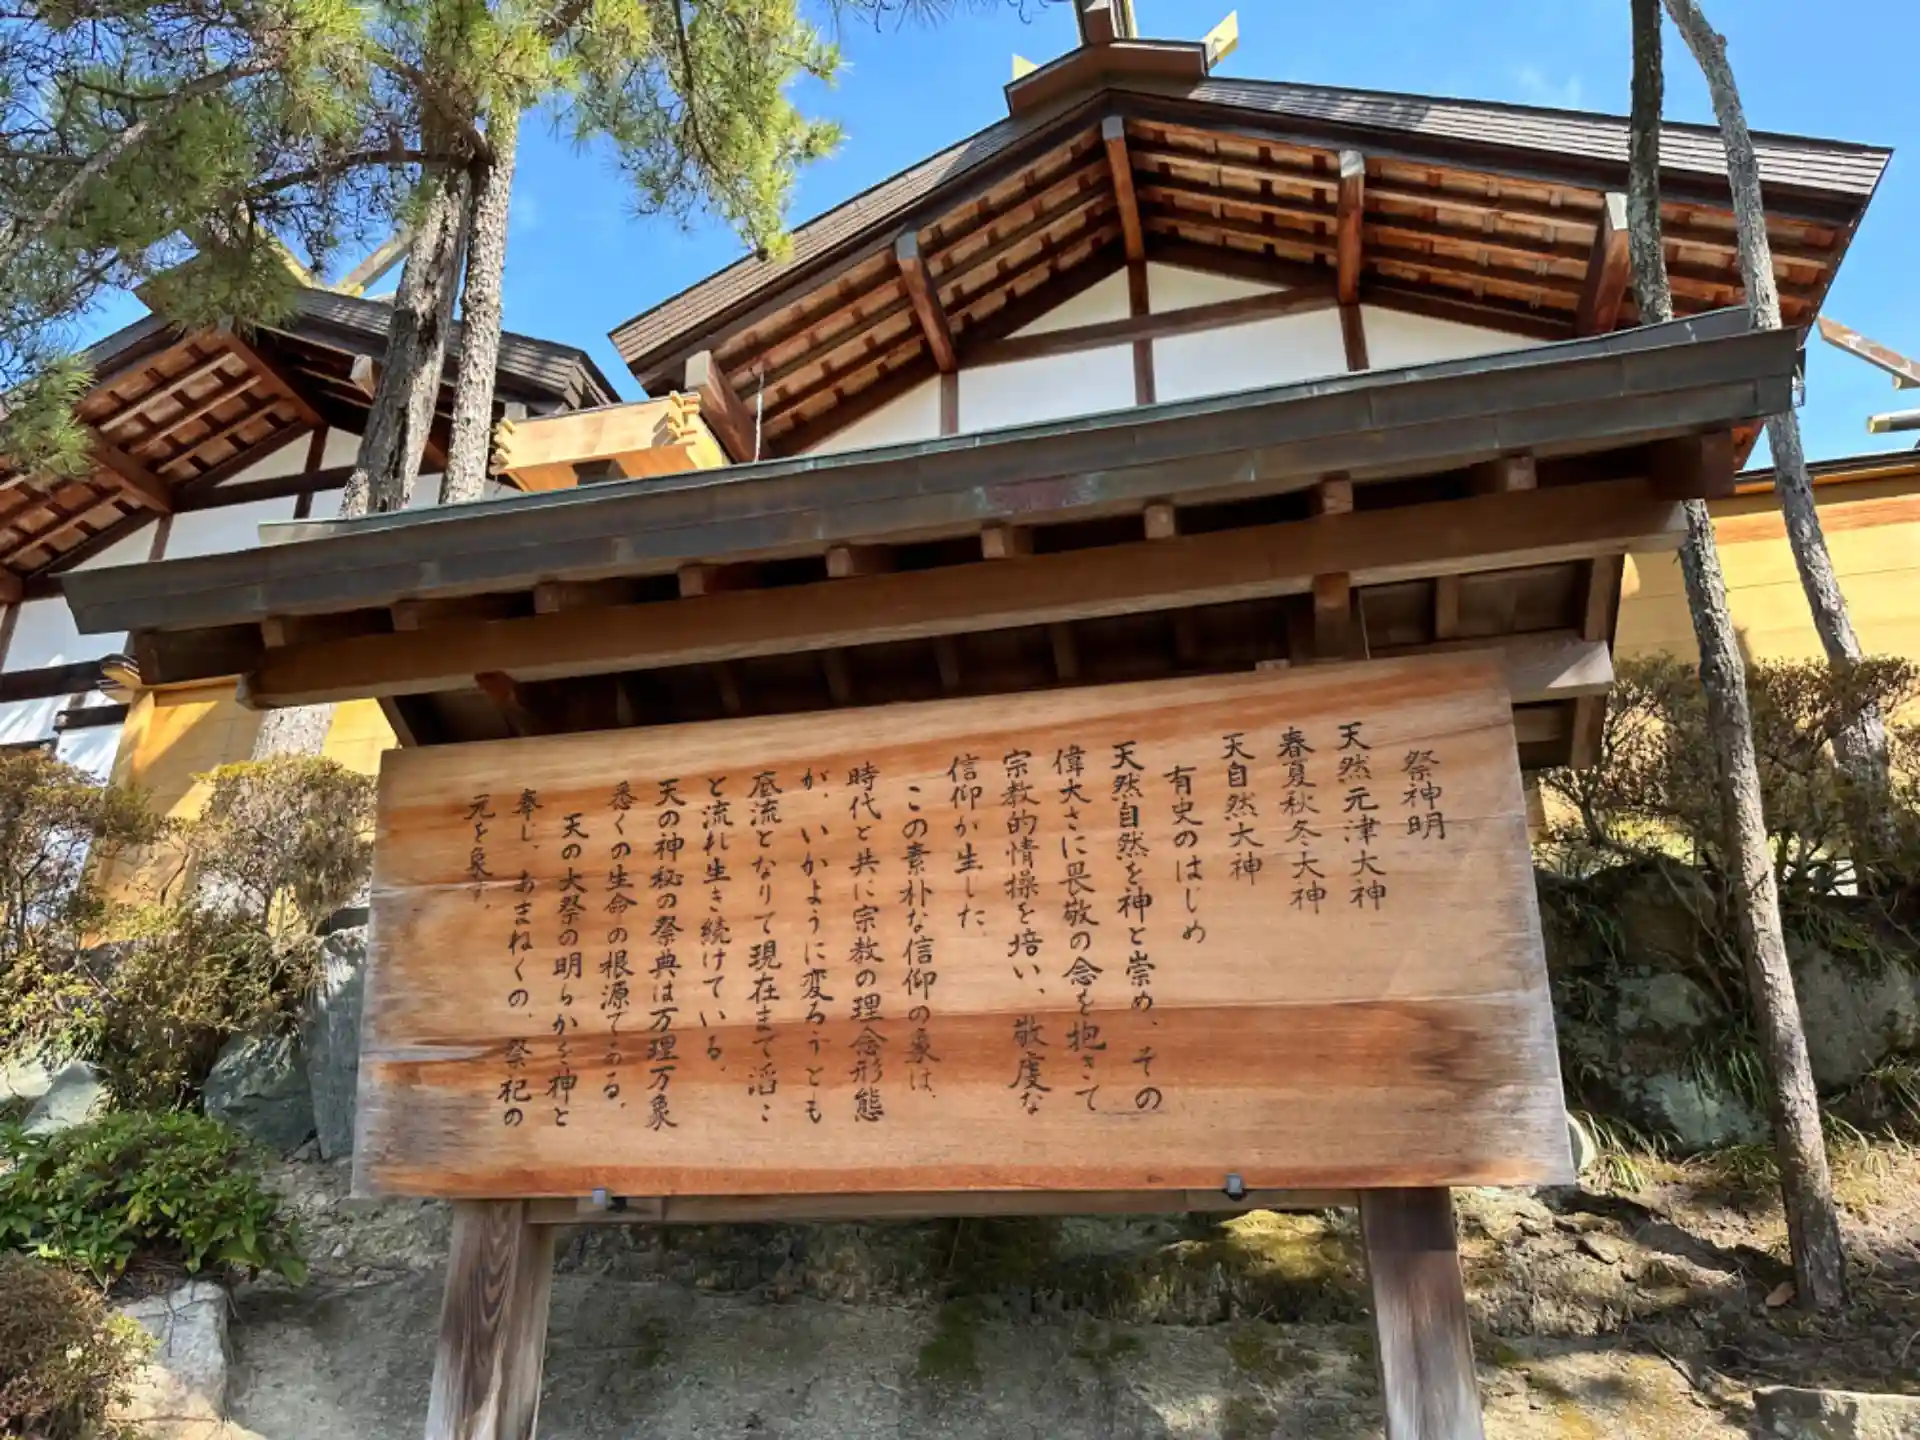 祭神明
天然元津大神
春夏秋冬大神
天自然大神
有史のはじめ
天然自然を神と崇め、その
偉大さに畏敬の念を抱きて
宗教的情操を培い、敬虔な
信仰が生した、
この素朴な信仰の象は、
時代と共に宗教の理念形態
が、いかように変ろうとも
底流となりて現在まで滔々
と流れ生き続けている、
天の神秘の祭典は万理万象
悉くの生命の根源である、
天の大祭の明らかを神と
奉じ、あまねくの、祭祀の
元を象す、